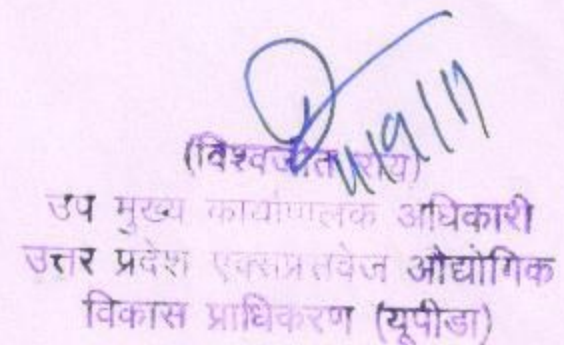 4/9/11
(विश्वजीत राय)
उप मुख्य कार्यापालक अधिकारी
उत्तर प्रदेश एक्सप्रेसवेज औद्योगिक
विकास प्राधिकरण (यूपीडा)